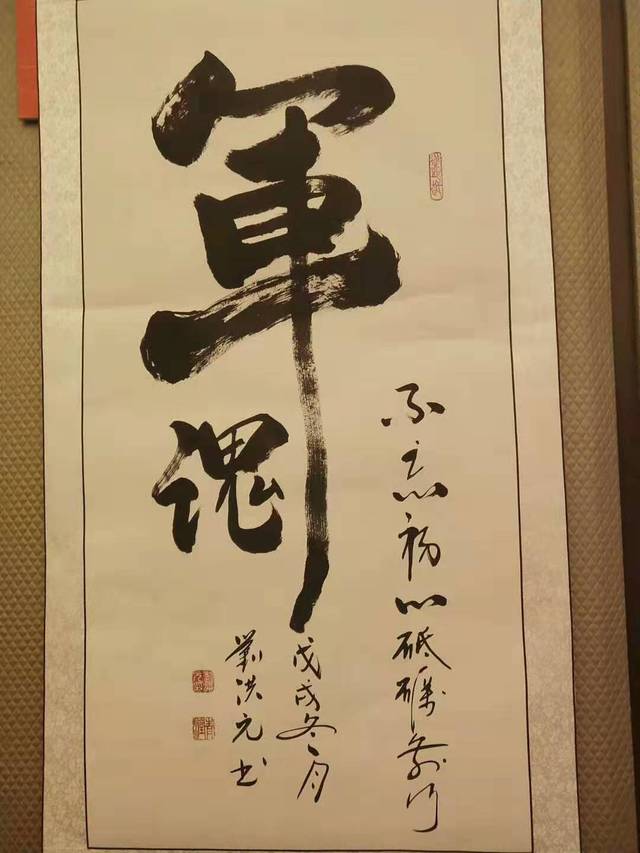 軍魂
不忘初心砥礪前行
戊戌冬月
劉洪元书